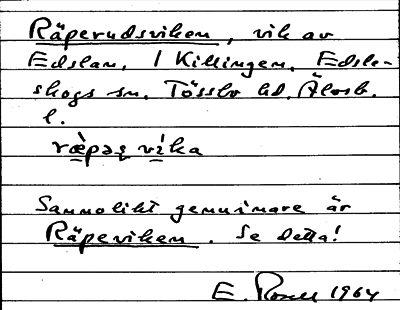 Räperudsviken, vik av
Edslan, / Killingen, Edsle-
skogs sn. Tössbo hd. Älvsb.
l.
ræ̀pəʂ vi̇̀ka
Sannolikt genuinare är
Räpeviken. Se detta!
E. Rosell 1964